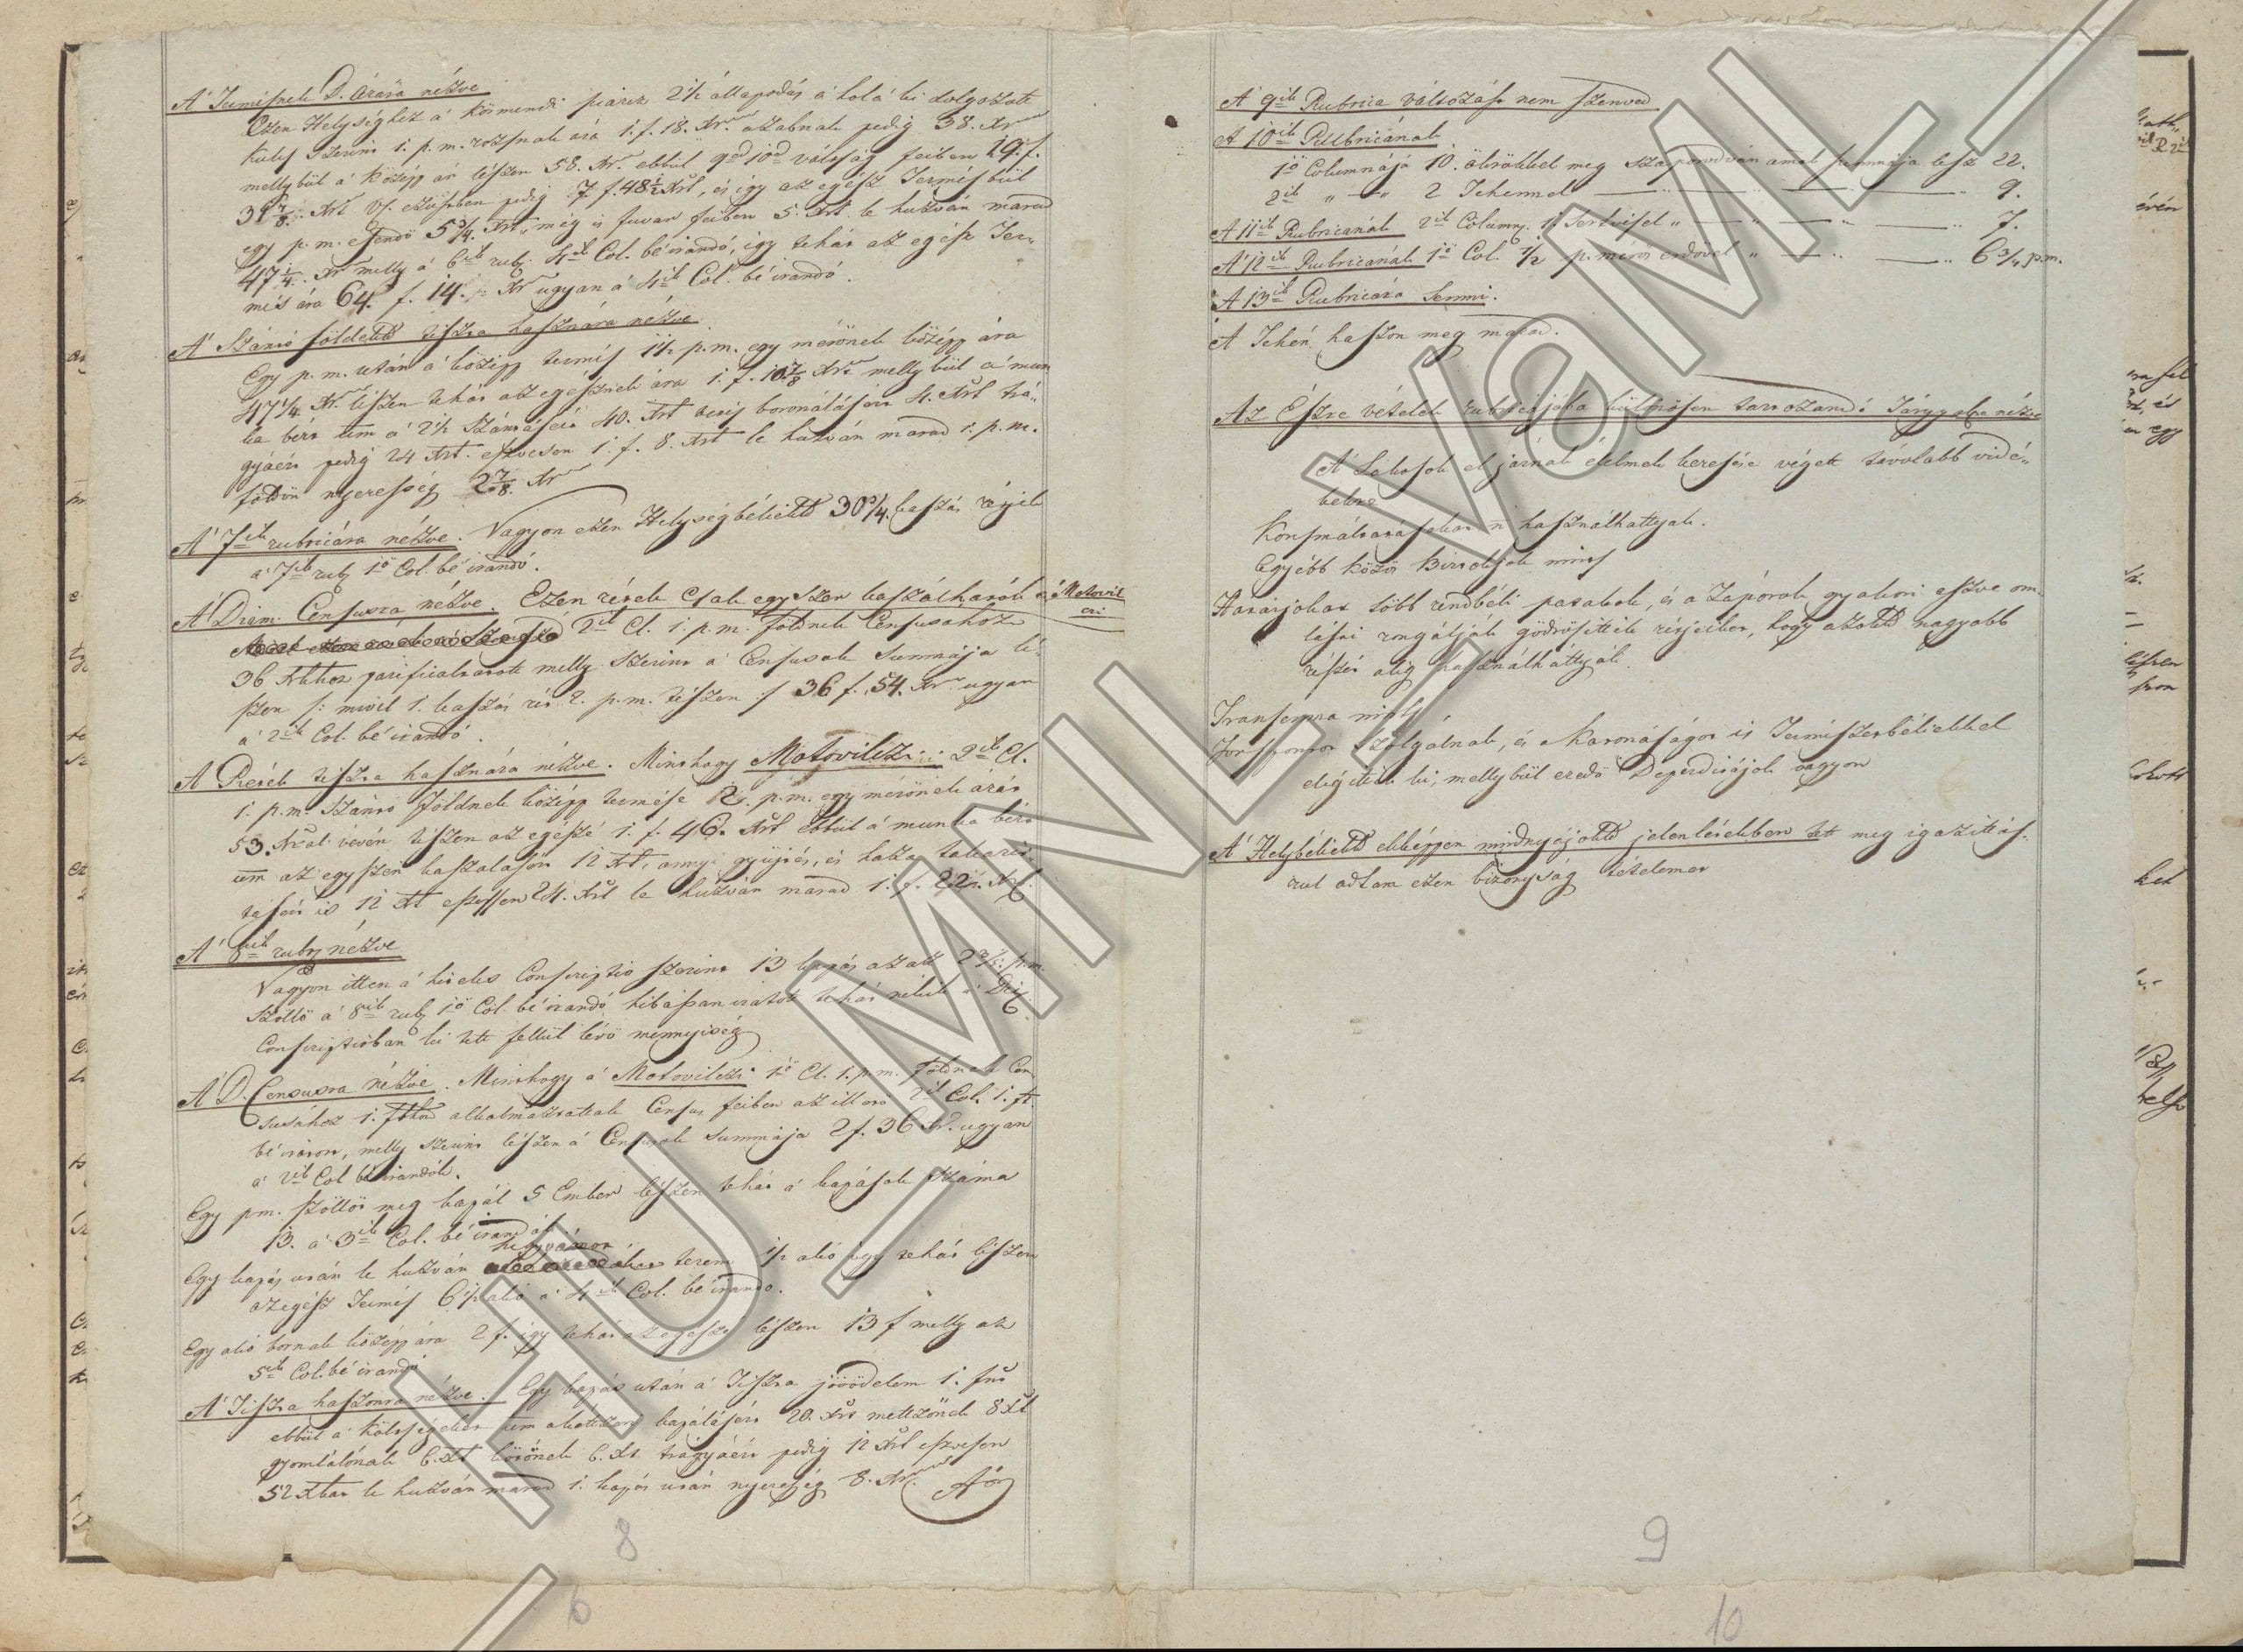 A' Termésnek D. Árára nézve
Ezen Helységhez á Körmendi piarcz 2½ állapodás á holá ki dolgozott
Kúlts szerint 1. p. m. rozsnak ára 1. f. 18. Xr. zabnak pedig 38. Xr
mellybül á közép ár lészen 58. Xr. ebbül 9ed 10ed váltság feiben 29. f.
39 7/8. Xrt Vf. ezüstben pedig 7 f. 48½ Xrt, és így az egész Termésbül
egy p. m. esendő 5¾. Xrt, még is fuvar feiben 5. Xrt. le huzván marad
47¼. Xr melly á 6ik rubr. 4ik Col. bé irandó, így tehát az egész Ter-
més ára 64. f. 14. Xr ugyan á 4ik Col. bé irandó.
A' Szántó földekk tiszta hasznára nézve
Egy p. m. után á közép termés 1½ p. m. egy mérőnek közép ára
47¼. Xr. lészen tehát az egésznek ára 1. f. 10 7/8 Xr mellybül á mun
ka bért um á 2½ szántásért 40. Xrt vetés boronálásért 4. Xrt trá-
gyáért pedig 24 Xrt. eszvesen 1. f. 8. Xrt le huzván marad 1. p. m.
földön nyereség 2 7/8. Xr
A' 7ik rubricára nézve. Vagyon ezen Helységbéliekk 30¾. kaszás rétjek
á 7ik rub. 1ő Col. bé irandó.
A' Diem. Censusra nézve. Ezen rétek csak egyszer kaszálhatók á Motovil
czi
2ik Cl. 1. p. m. földnek Censusahoz
36 Xrhoz parificaltatott melly szerint á Censusok Summája lé-
szen /: mivel 1. kaszás rét 2. p. m. tészen :/ 36 f. 54. Xr ugyan
á 2ik Col. bé irandó.
A' Rétek tiszta hasznára nézve. Minthogy Motoviliczi 2ik Cl.
1. p. m. szántó földnek közép termése 2. p. m. egy mérőnek árát
53. Xral vévén tészen az egészé 1. f. 46. Xrt ebbül á munka bért
um az egyszeri kaszálásért 12 Xrt, annyi gyüjtés, és haza takarit-
tásért is 12 Xt eszvessen 24. Xrt le huzván marad 1. f. 22. Xr.
A' 8ik rubr nézve
Vagyon itten á hiteles Conscriptio szerint 13 kapás azaz 2 3/5. p. m.
Szöllő á 8ik rubr 1ő Col. bé irandó hibássan iratott tehát nékik á Dic.
Conscriptioban ki tett fellül lévő mennyiség
A' D. Censusra nézve. Minthogy á Motoviliczi 1ő Cl. 1. p. m. földnek Cen-
susához 1. fthoz alkalmaztattak Census feiben az illető 2ik Col. 1. ft.
bé irattott, melly szerint lészen á Censusok Summája 2 f. 36 Xr. ugyan
á 2ik Col bé irandók.
Egy pm. szöllőt meg kapál 5 Ember lészen tehát á kapások száma
13. á 3ik Col. bé irandó.
hegyvámot
Egy kapás után le huzván terem ½ akó így tehát lészen
az egész Termés 6½ akó á 4ik Col. bé irandó.
Egy akó bornak közép ára 2 f. így tehát az egésze lészen 13 f melly az
5ik Col. bé irandó
A' Tiszta haszonra nézve. Egy kapás után á Tiszta jövödelem 1. fnt
ebbül á költségeket um akétszeri kapálásért 20. Xrt mettzőnek 8 Xt
gyomlálónak 6. Xt kötőnek 6. Xt trágyáért pedig 12 Xrt eszvesen
52 Xtat le huzván marad 1. kapás után nyereség 8. Xr.
8
6
A' 9ik Rubrica változást nem szenved
A' 10ik Rubricának
1ő Columnája 10. ökrökkel meg szaporodván annak summája lesz 22.
2ik „ — „ 2 Tehennel — „ — „ — „ 9.
A' 11ik Rubricanak 2ik Column. 1 Sertvéssel „ — „ — „ — „ 7.
A' 12ik Rubricának 1ő Col. ½ p. mérős erdővel „ — „ — „ 6¾ p.m.
A' 13ik Rubricára Semmi.
A' Tehén haszon meg marad.
Az Észre vételek rubricájába különösen tartozandó Tárgyakra nézve
A' Lakosok el járnak élelmek keresése végett távolabb vidé-
kekre
Kommáltatásokat is használhattyak.
Egyébb közös Birtokjok nints
Határjokat több rendbéli patakok, és a Záporok gyakori eszve om-
lásai rongálják gödrösittik rétjeiket, hogy azokk nagyobb
részét alig használhattyák.
Transenna nints
Forspontot szolgálnak, és Katonaságot is Termiszetbéliekkel
elégitik ki, mellybül eredő Deperditájok vagyon
A' Helybéliekk ekképpen mindnyájokk jelenlétekben tett meg igazittás-
rul adtam ezen bizonyság tételemet
9
10